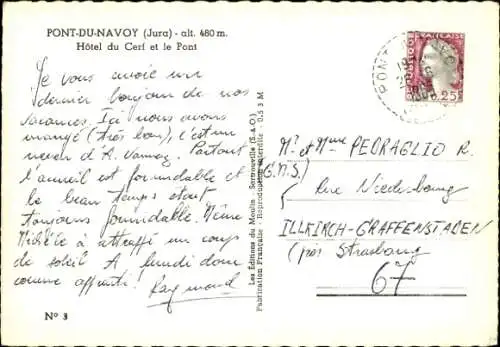 PONT-DU-NAVOY (Jura) - alt. 480 m.
Hôtel du Cerf et le Pont
Je vous envoie un
dernier bonjour de nos
vacances. Ici nous avons
mangé (très bon), c'est un
neveu d'A.
Partout
l'accueil est formidable et
le beau temps était
toujours formidable. Même
a attrapé un coup
de soleil A lundi donc
comme
Raymond
N° 3
Les Éditions du Moulin - Sermamville (S.-&-O.)
Fabrication Française - Reproduction Interdite - D.S 3 M
FRANÇAISE
0,25
Mr et Mme PEDRAGLIO R.
(G.M.S.)
Rue Niederbourg
ILLKIRCH-GRAFFENSTADEN
(près Strasbourg
67